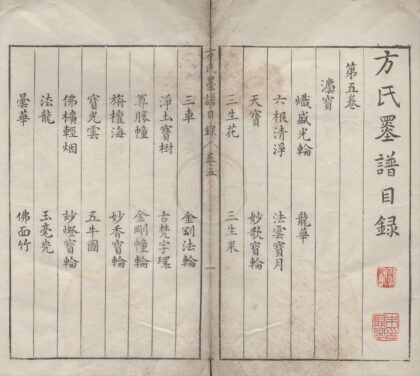 方氏墨譜目錄
第五卷
灋寶
熾盛光輪 龍華
六根清淨 法雲寶月
天寶 妙歌寶輪
三生花 三生果
方氏墨譜目錄 卷五 一
三車 金剛法輪
淨土寶樹 古梵字環
尊勝幢 金剛幢輪
旃檀海 妙香寶輪
寶光雲 五牛圖
佛櫎輕烟 玅燈寶輪
法龍 玉毫光
曇華 佛面竹